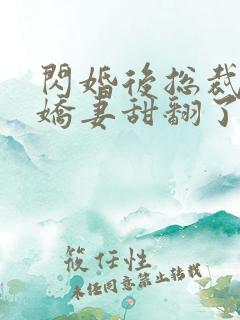 閃婚後総裁
嬌妻甜翻了
筱任性
未经同意禁止转载